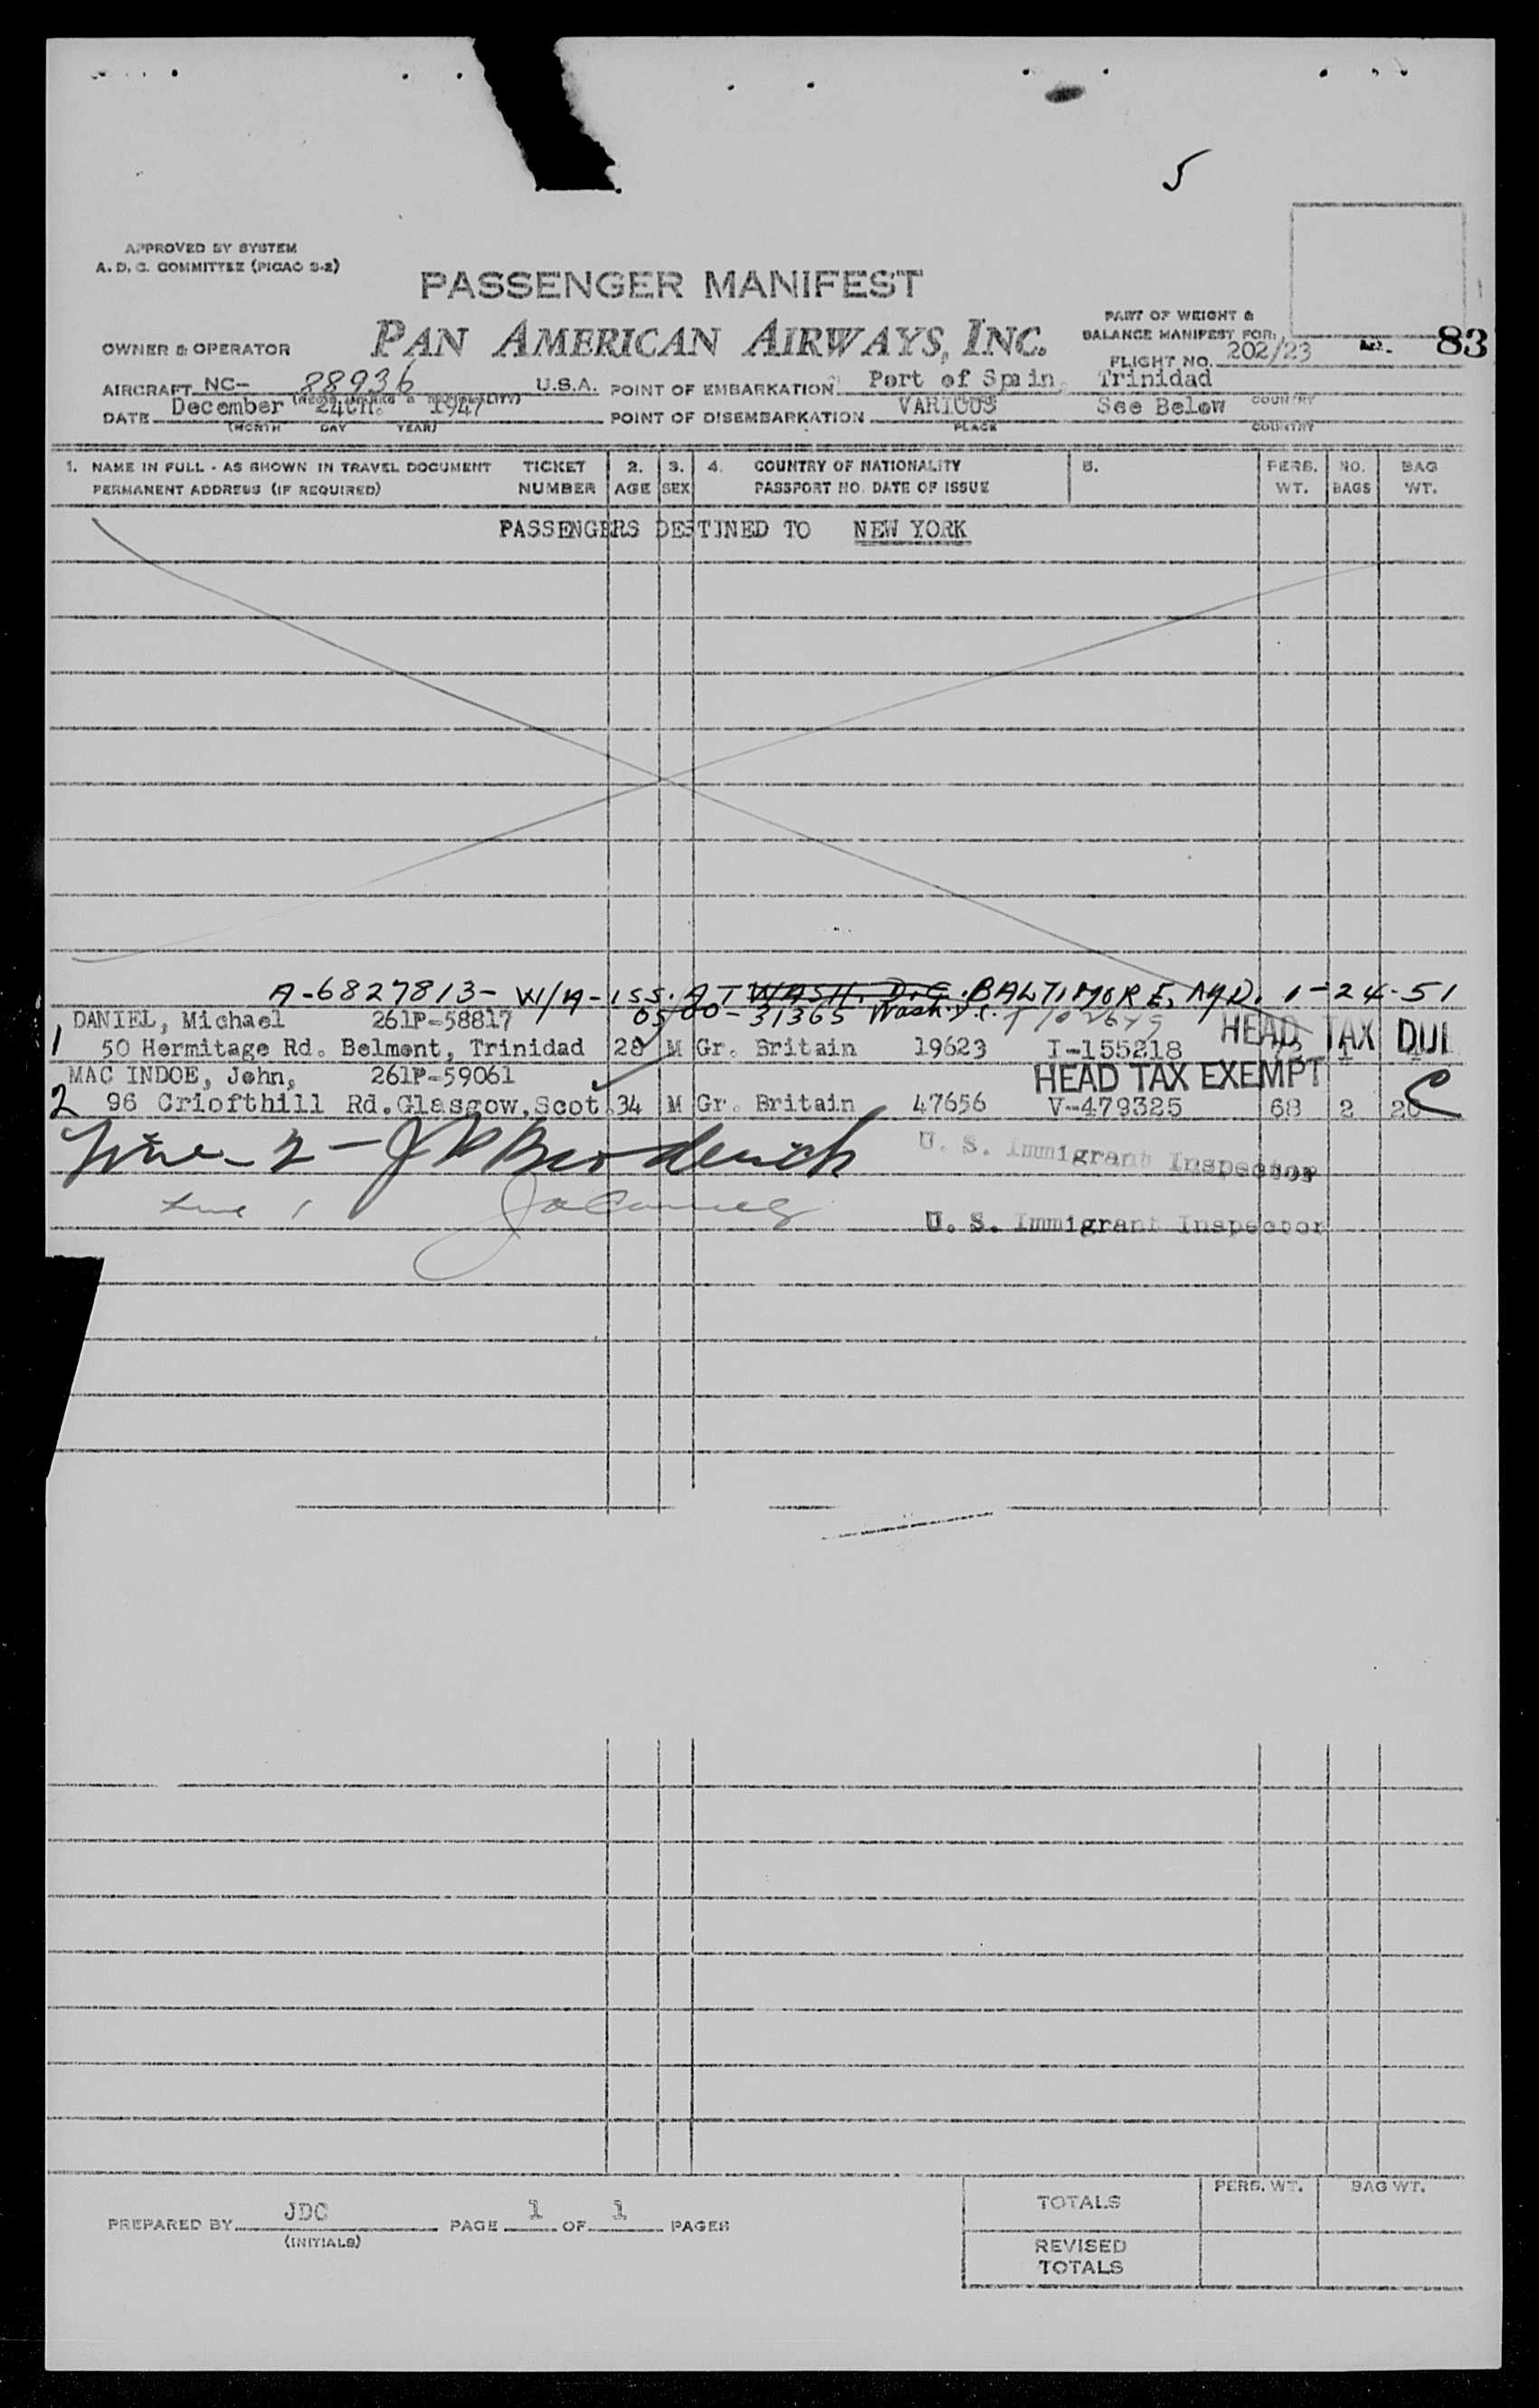 5
APPROVED BY SYSTEM
A. D. C. COMMITTEE (PICAO S-2)
PASSENGER MANIFEST
PAN AMERICAN AIRWAYS, INC.
OWNER & OPERATOR
PART OF WEIGHT &
BALANCE MANIFEST FOR:
FLIGHT NO. 202/23
83
AIRCRAFT NC- 88936 U.S.A. POINT OF EMBARKATION Port of Spain, Trinidad
DATE December 24th. 1947 POINT OF DISEMBARKATION VARIOUS See Below
(MONTH DAY YEAR) PLACE COUNTRY
1. NAME IN FULL - AS SHOWN IN TRAVEL DOCUMENT TICKET 2. 3. 4. COUNTRY OF NATIONALITY 5. PERS. NO. BAG
PERMANENT ADDRESS (IF REQUIRED) NUMBER AGE SEX PASSPORT NO. DATE OF ISSUE WT. BAGS WT.
PASSENGERS DESTINED TO NEW YORK
A-6827813- W/A-ISS. AT WASH. D.C. BALTIMORE, MD. 1-24-51
DANIEL, Michael 261P-58817 0500-31365 Wash. D.C.
HEAD TAX DUE
1 50 Hermitage Rd. Belmont, Trinidad 28 M Gr. Britain 19623 I-155218
MAC INDOE, John, 261P-59061 HEAD TAX EXEMPT
2 96 Criofthill Rd. Glasgow, Scot. 34 M Gr. Britain 47656 V-479325 68 2 20
Line - 2 - Broderick U. S. Immigrant Inspector
Line 1 U. S. Immigrant Inspector
PREPARED BY JDC PAGE 1 OF 1 PAGES
(INITIALS)
TOTALS PERS. WT. BAG WT.
REVISED
TOTALS